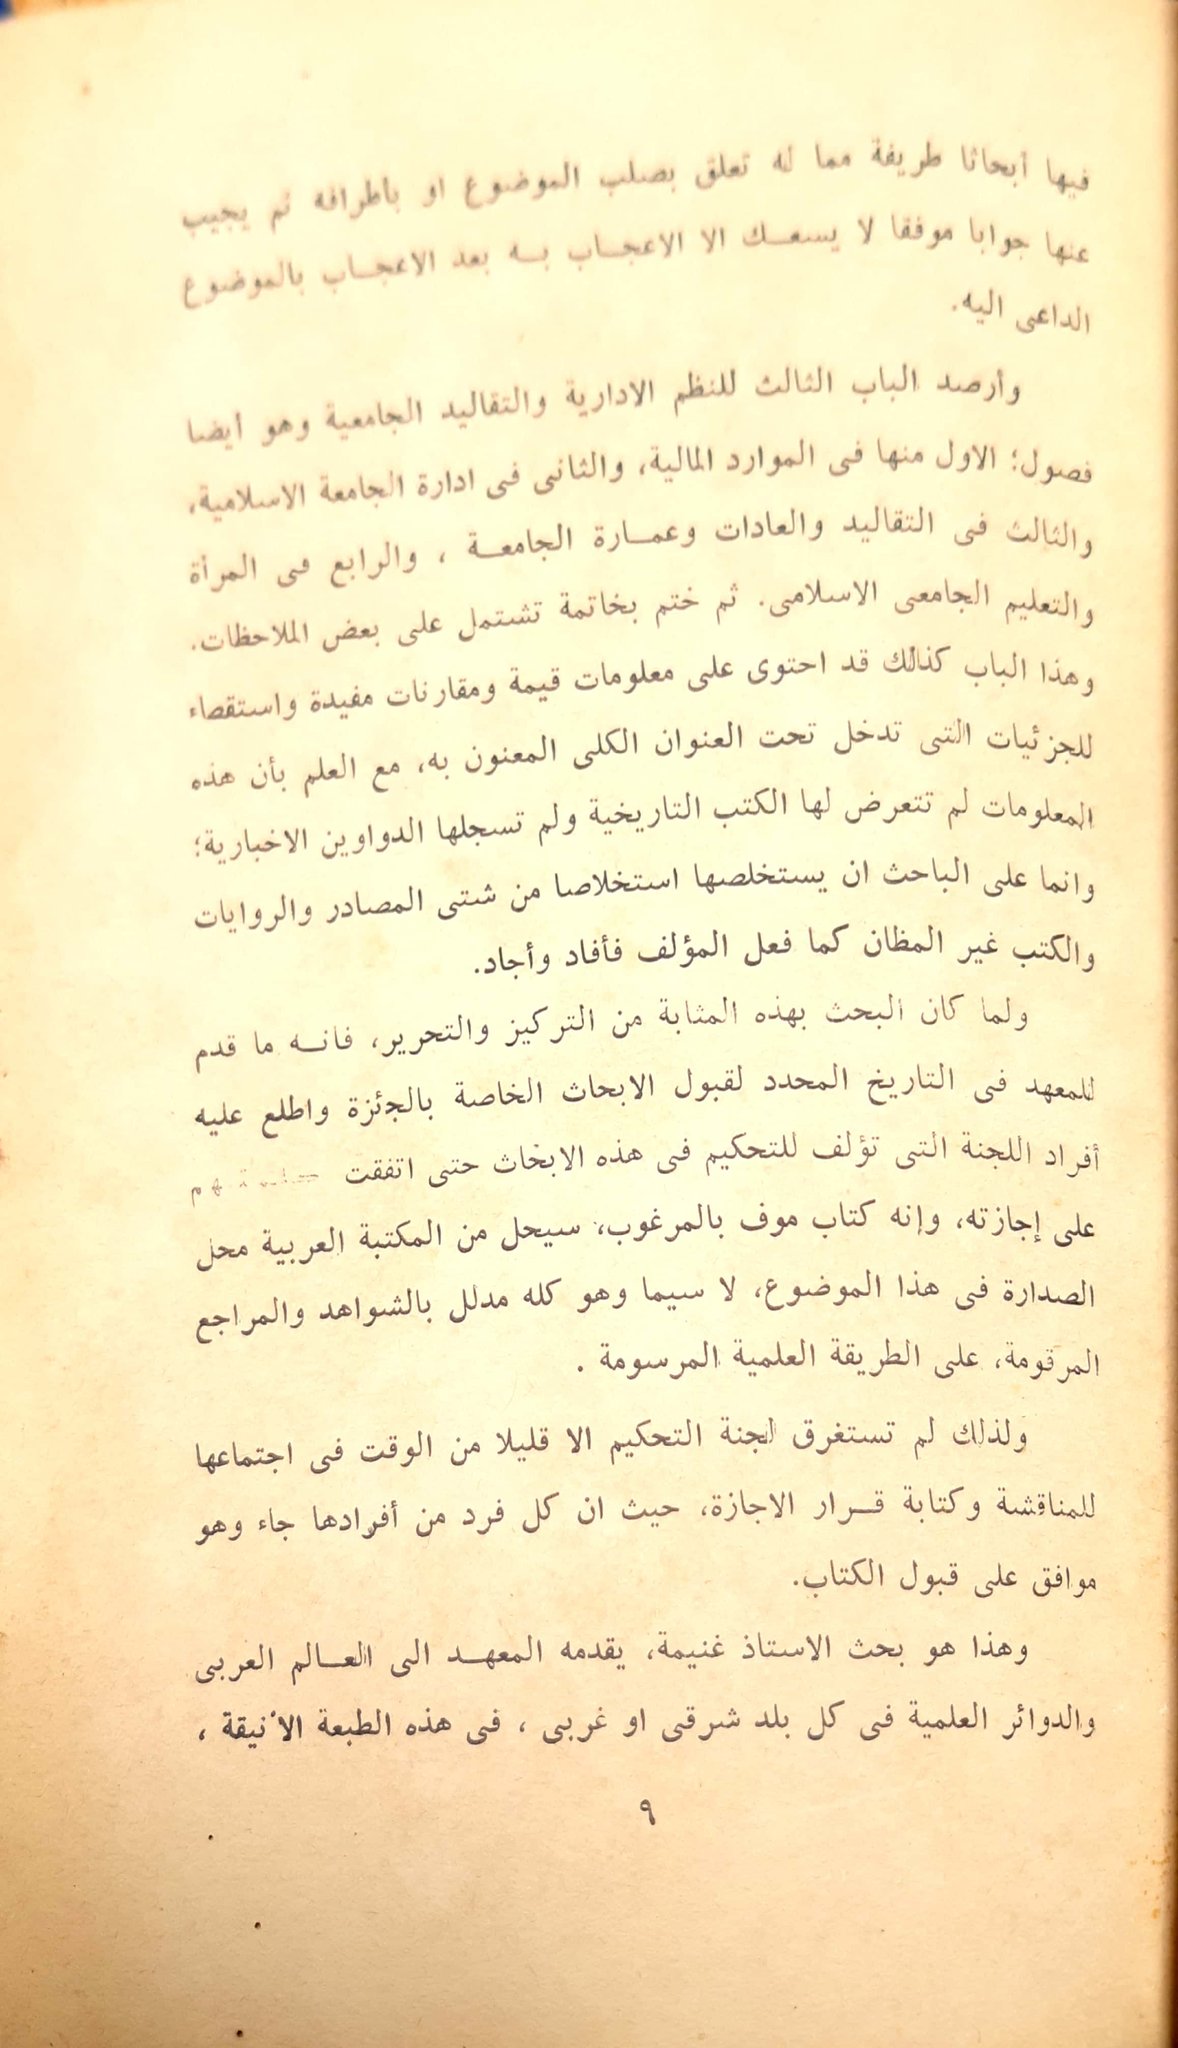 فيها أبحاثا طريفة مما له تعلق بصلب الموضوع او باطرافه ثم يجيب
عنها جوابا موفقا لا يسعك الا الاعجاب به بعد الاعجاب بالموضوع
الداعى اليه.
وأرصد الباب الثالث للنظم الادارية والتقاليد الجامعية وهو أيضا
فصول؛ الاول منها فى الموارد المالية، والثانى فى ادارة الجامعة الاسلامية،
والثالث فى التقاليد والعادات وعمارة الجامعة ، والرابع فى المرأة
والتعليم الجامعى الاسلامى. ثم ختم بخاتمة تشتمل على بعض الملاحظات.
وهذا الباب كذلك قد احتوى على معلومات قيمة ومقارنات مفيدة واستقصاء
للجزئيات التى تدخل تحت العنوان الكلى المعنون به، مع العلم بأن هذه
المعلومات لم تتعرض لها الكتب التاريخية ولم تسجلها الدواوين الاخبارية؛
وانما على الباحث ان يستخلصها استخلاصا من شتى المصادر والروايات
والكتب غير المظان كما فعل المؤلف فأفاد وأجاد.
ولما كان البحث بهذه المثابة من التركيز والتحرير، فانه ما قدم
للمعهد فى التاريخ المحدد لقبول الابحاث الخاصة بالجئزة واطلع عليه
أفراد اللجنة التى تؤلف للتحكيم فى هذه الابخاث حتى اتفقت
على إجازته، وإنه كتاب موف بالمرغوب، سيحل من المكتبة العربية محل
الصدارة فى هذا الموضوع، لا سيما وهو كله مدلل بالشواهد والمراجع
المرقومة، على الطريقة العلمية المرسومة .
ولذلك لم تستغرق لجنة التحكيم الا قليلا من الوقت فى اجتماعها
للمناقشة وكتابة قرار الاجازة، حيث ان كل فرد من أفرادها جاء وهو
موافق على قبول الكتاب.
وهذا هو بحث الاستاذ غنيمة، يقدمه المعهد الى العالم العربى
والدوائر العلمية فى كل بلد شرقى او غربى ، فى هذه الطبعة الأنيقة ،
٩